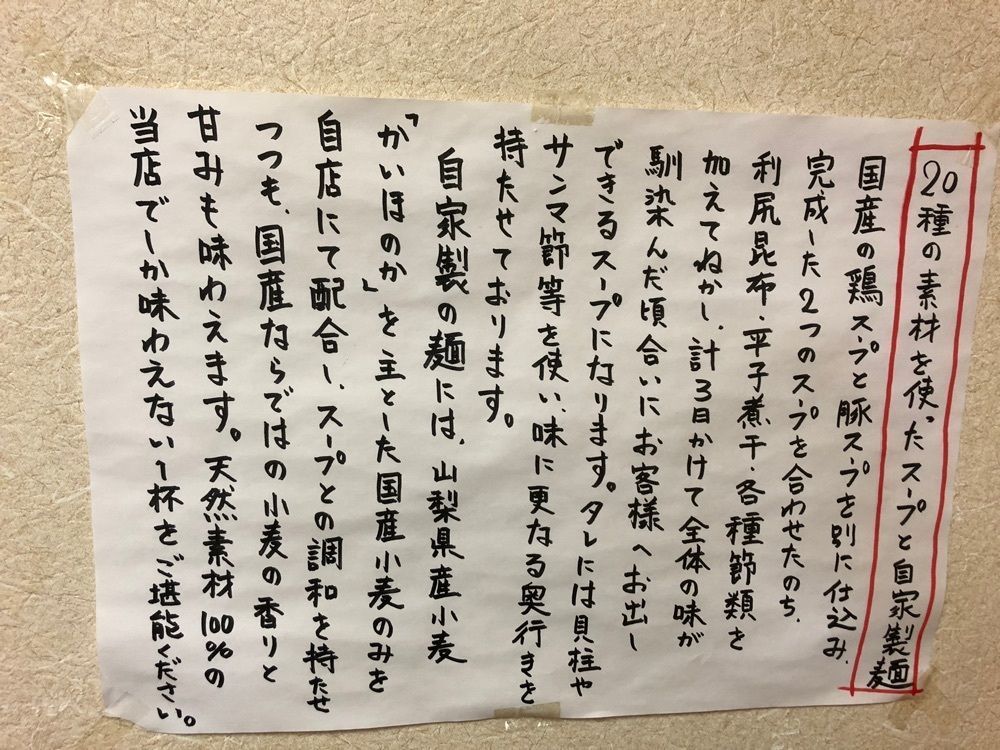 20種の素材を使ったスープと自家製麺
国産の鶏スープと豚スープを別に仕込み、
完成した2つのスープを合わせたのち、
利尻昆布・平子煮干・各種節類を
加えてねかし、計3日かけて全体の味が
馴染んだ頃合いにお客様へお出し
できるスープになります。タレには貝柱や
サンマ節等を使い、味に更なる奥行きを
持たせております。
自家製の麺には、山梨県産小麦
「かいほのか」を主とした国産小麦のみを
自店にて配合し、スープとの調和を持たせ
つつも、国産ならではの小麦の香りと
甘みも味わえます。天然素材100%の
当店でしか味わえない1杯をご堪能ください。